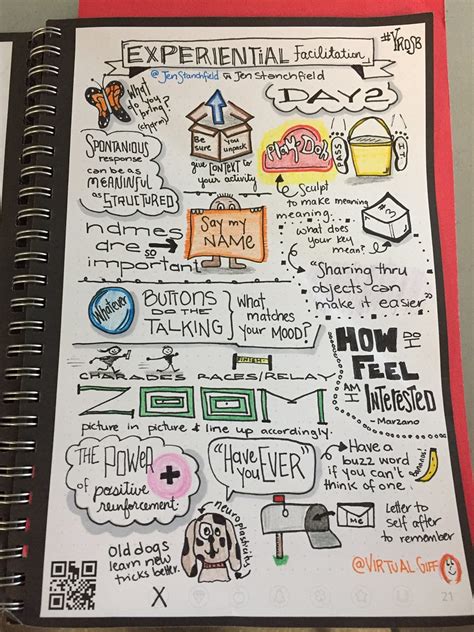 EXPERIENTIAL Facilitation
#YROS8
@JenStanchfield Jen Stanchfield
DAY 2
What do you bring? (charm)
Be sure
You unpack
give CONTEXT to your activity
Play-Doh
PASS
IT
SPONTANIOUS
response
can be as
MEANINFUL
as
STRUCTURED
Sculpt
to make meaning
meaning.
what does
your key
mean?
#3
names
are so
important
Say my
NAME
"Sharing thru
objects can
make it easier"
Whatever
BUTTONS
DO THE
TALKING
What
matches
your MOOD?
HOW DO I
FEEL
AM I
INTERESTED
- Marzano
FINISH
CHARADES RACES/RELAY
ZOOM
picture in picture & line up accordingly.
THE POWER
of positive
reinforcement
+
"Have
You EVER"
Have a
buzz word
if you can't
think of one.
Bananas!
neuroplasticity
old dogs
learn new
tricks better.
Me
Letter to
self after
to remember
@VIRTUAL GIFF
X
21